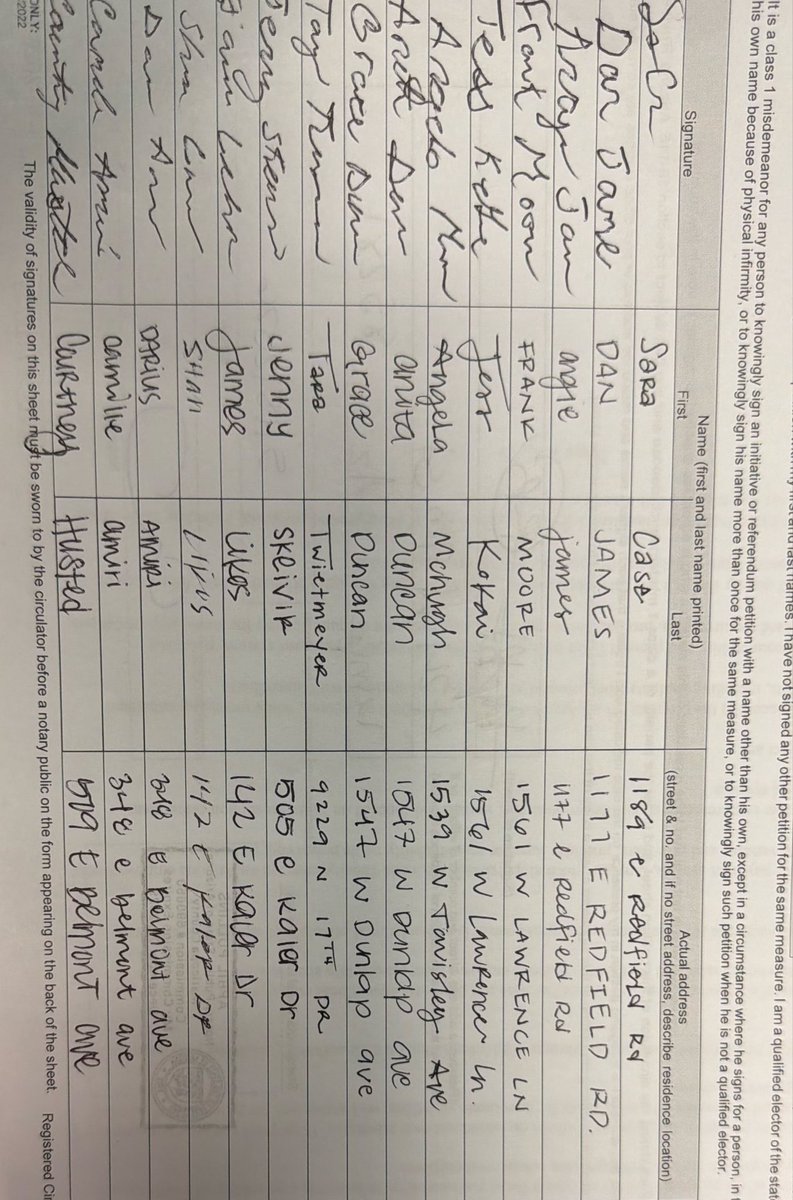 my first and last names. I have not signed any other petition for the same measure. I am a qualified elector of the stat
It is a class 1 misdemeanor for any person to knowingly sign an initiative or referendum petition with a name other than his own, except in a circumstance where he signs for a person, in
his own name because of physical infirmity, or to knowingly sign his name more than once for the same measure, or to knowingly sign such petition when he is not a qualified elector.
Name (first and last name printed)
Signature First Last Actual address
(street & no. and if no street address, describe residence location)
Sara Case 1189 E Redfield Rd
Dan Jame DAN JAMES 1177 E REDFIELD RD.
angie james 1177 e Redfield Rd
Frank Moon FRANK MOORE 1561 W LAWRENCE LN
Tess Jess Kokai 1561 W Lawrence Ln.
Angela McHugh 1539 W Townley Ave
anita Duncan 1547 W Dunlap ave
Grace Grace Duncan 1547 W Dunlap ave
Tara Twietmeyer 9229 N 17TH DR
Jenny Skeivik 505 e Kaler Dr
James Likes 142 E Kaler Dr
142 E DR
DARIUS AMIRI 348 E Belmont ave
camille amiri 348 e belmont ave
Courtney Husted 519 E Belmont ave
The validity of signatures on this sheet must be sworn to by the circulator before a notary public on the form appearing on the back of the sheet. Registered Cir
ONLY:
2022